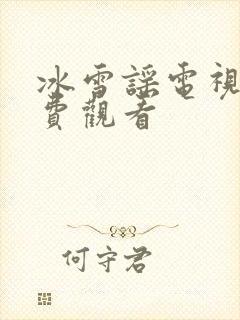 冰雪謠電視
費觀看
何守君